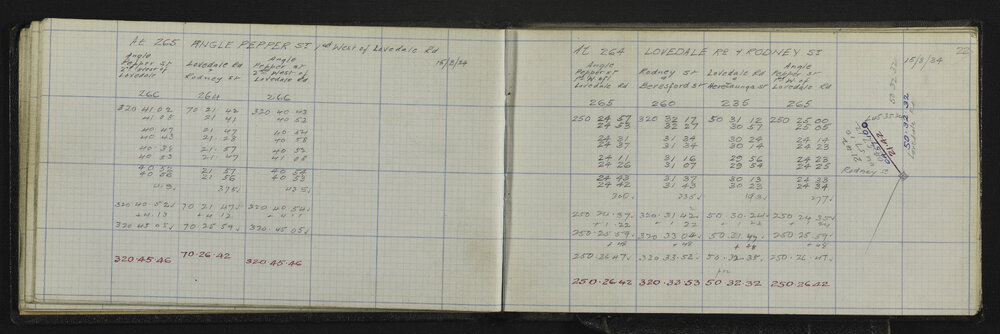 At 265 ANGLE PEPPER ST 1st West of Lovedale Rd
15/8/34
Angle Pepper St 2nd West of Lovedale
Lovedale Rd Rodney St
Angle Pepper St 2nd West of Lovedale Rd
266 264 266
320 41 02 70 21 42 320 40 43
41 05 21 41 40 52
40 47 21 47 40 54
40 43 21 28 40 58
40 38 21 57 40 52
40 53 21 47 41 05
40 52 21 57 40 54
40 56 21 56 40 53
413 375 435
320 40 52 70 21 47 320 40 54
+4 13 +4 12 +4 11
320 45 05 70 25 59 320 45 05
320.45.46 70.26.42 320.45.46
22
At 264 LOVEDALE RD & RODNEY ST
15/8/34
Angle Pepper St 1st W. of Lovedale Rd
Rodney St Beresford St
Lovedale Rd Heretaunga St
Angle Pepper St 1st W. of Lovedale Rd
265 260 235 265
250 24 57 320 32 17 50 31 12 250 25 00
24 53 32 27 30 57 25 05
24 31 31 34 30 24 24 14
24 37 31 34 30 14 24 23
24 11 31 16 29 56 24 23
24 26 31 07 29 54 24 25
24 43 31 37 30 13 24 33
24 42 31 43 30 23 24 34
235 193 277
250.24.37 320.31.42 50.30.24 250 24 35
+1.22 1 22
250.25.59 320 33 04 50.31.47 250.25.59
+48 +48 +48 +48
250.26.47 320 33.52 50.32.35 250.26.47
250.26.42 320.33.53 50 32.32 250.26.42
50.32.32
Lovedale Rd
Rodney St